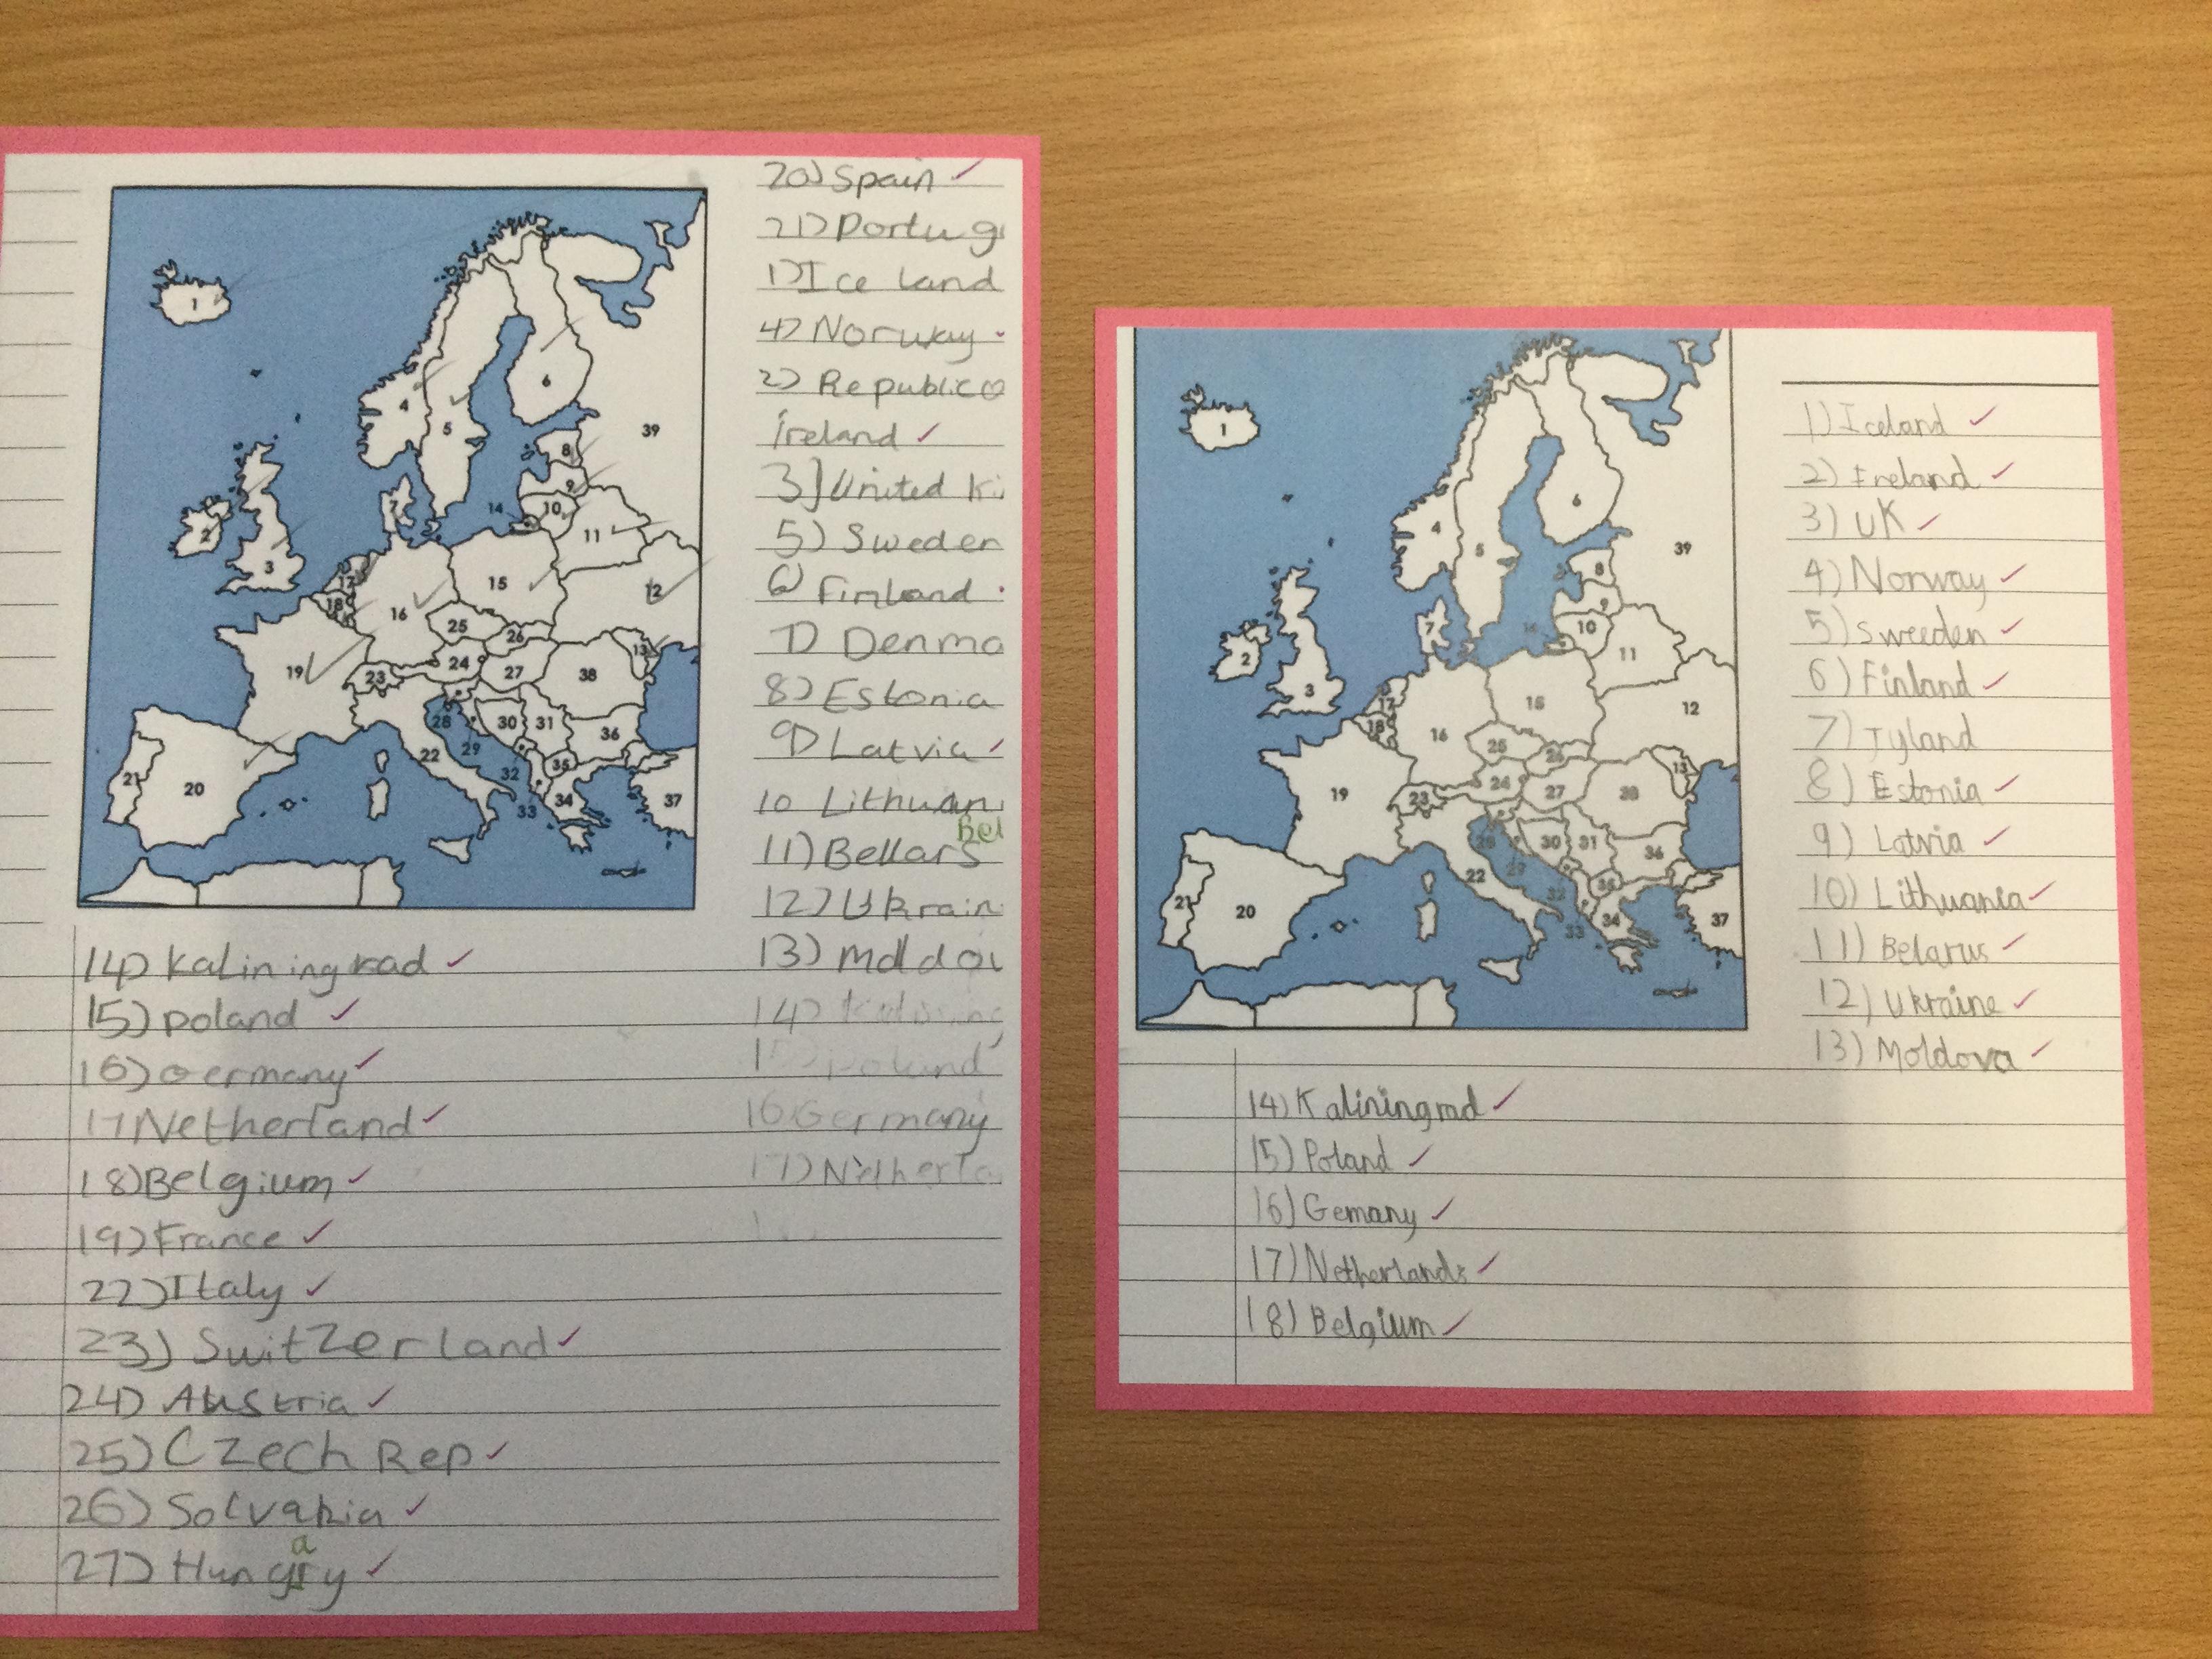 20) Spain
21) Portug
1) Ice land
4) Norway
2) Republic o
ireland
3) United Ki
5) Sweden
6) Finland
7) Denma
8) Estonia
9) Latvia
10 Lithuan
Bel
11) Bellars
12) Ukrain
13) Moldov
14) Kalining
15) Poland
16 Germany
17) Netherla
14) Kaliningrad
15) poland
16) Germany
17 Netherland
18) Belgium
19) France
22) Italy
23) Switzerland
24) Austria
25) Czech Rep
26) Solvakia
a
27) Hungry
1
2
3
4
5
6
7
8
9
10
11
12
13
14
15
16
17
18
19
20
21
22
23
24
25
26
27
28
29
30
31
32
33
34
35
36
37
38
39
1) Iceland
2) Ireland
3) UK
4) Norway
5) Sweeden
6) Finland
7) Jyland
8) Estonia
9) Latvia
10) Lithuania
11) Belarus
12) Ukraine
13) Moldova
14) Kaliningrad
15) Poland
16) Gemany
17) Netherlands
18) Belgium
1
2
3
4
5
6
7
8
9
10
11
12
13
14
15
16
17
18
19
20
21
22
23
24
25
26
27
28
29
30
31
32
33
34
35
36
37
38
39